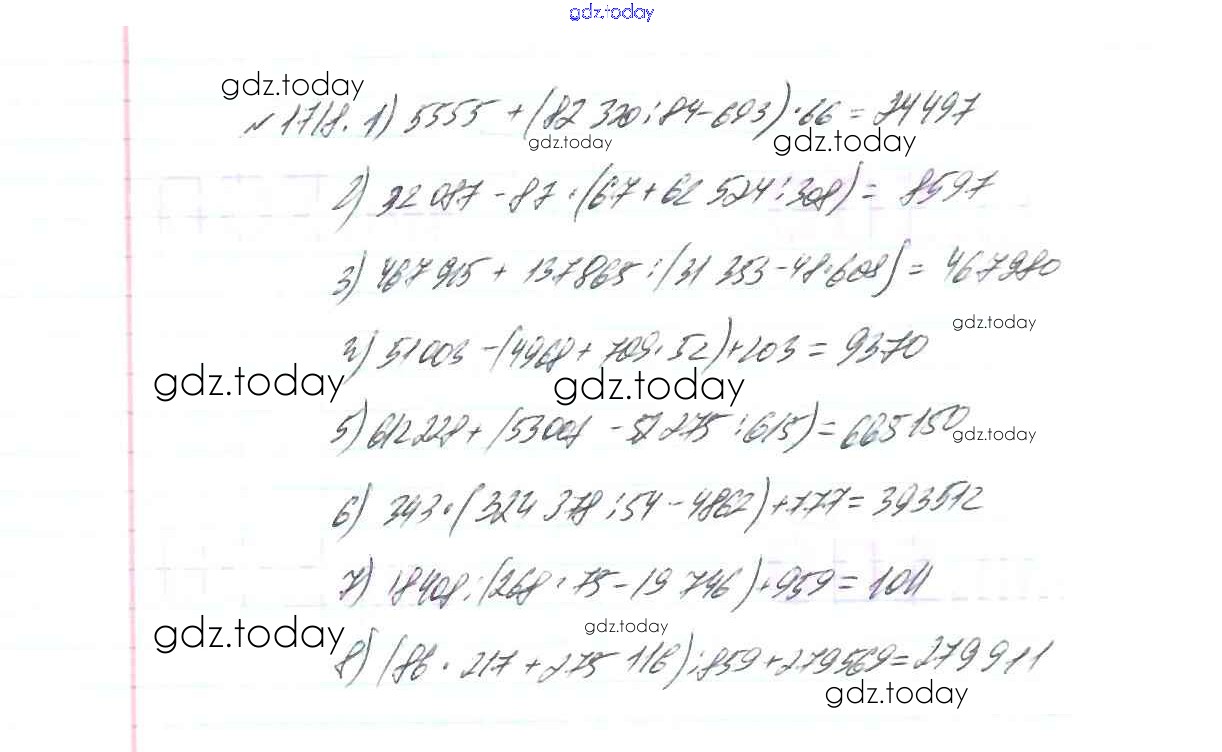 gdz.today
gdz.today
№ 1718. 1) 5555 + (82 320 : 84 - 693) · 66 = 24497
gdz.today
gdz.today
2) 32 087 - 87 · (67 + 62 524 : 308) = 8597
3) 467 915 + 137865 : (31 353 - 48·608) = 467980
gdz.today
4) 51 003 - (4968 + 709·52) + 203 = 9370
gdz.today
gdz.today
5) 612 228 + (53001 - 275 : 615) = 665150
gdz.today
6) 343 · (324 378 : 54 - 4862) + 777 = 393512
7) 18408 : (268 · 75 - 19 746) + 959 = 1011
gdz.today
gdz.today
8) (86 · 217 + 275 116) : 859 + 279569 = 279911
gdz.today